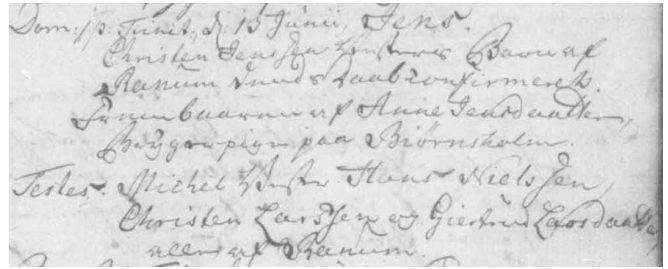 Dom: 1 p: Trinit:, d: 13 Junii, Jens.
Christen Jenssen Barn af
Ranum Daab confirmeret.
Frembaaren af Anne Jensdaatter,
Bryggerpige paa Biørnsholm.
Testes. Michel Hans Nielssen,
Christen Larssen og Giertrud Larsdaatter,
alle af Ranum.